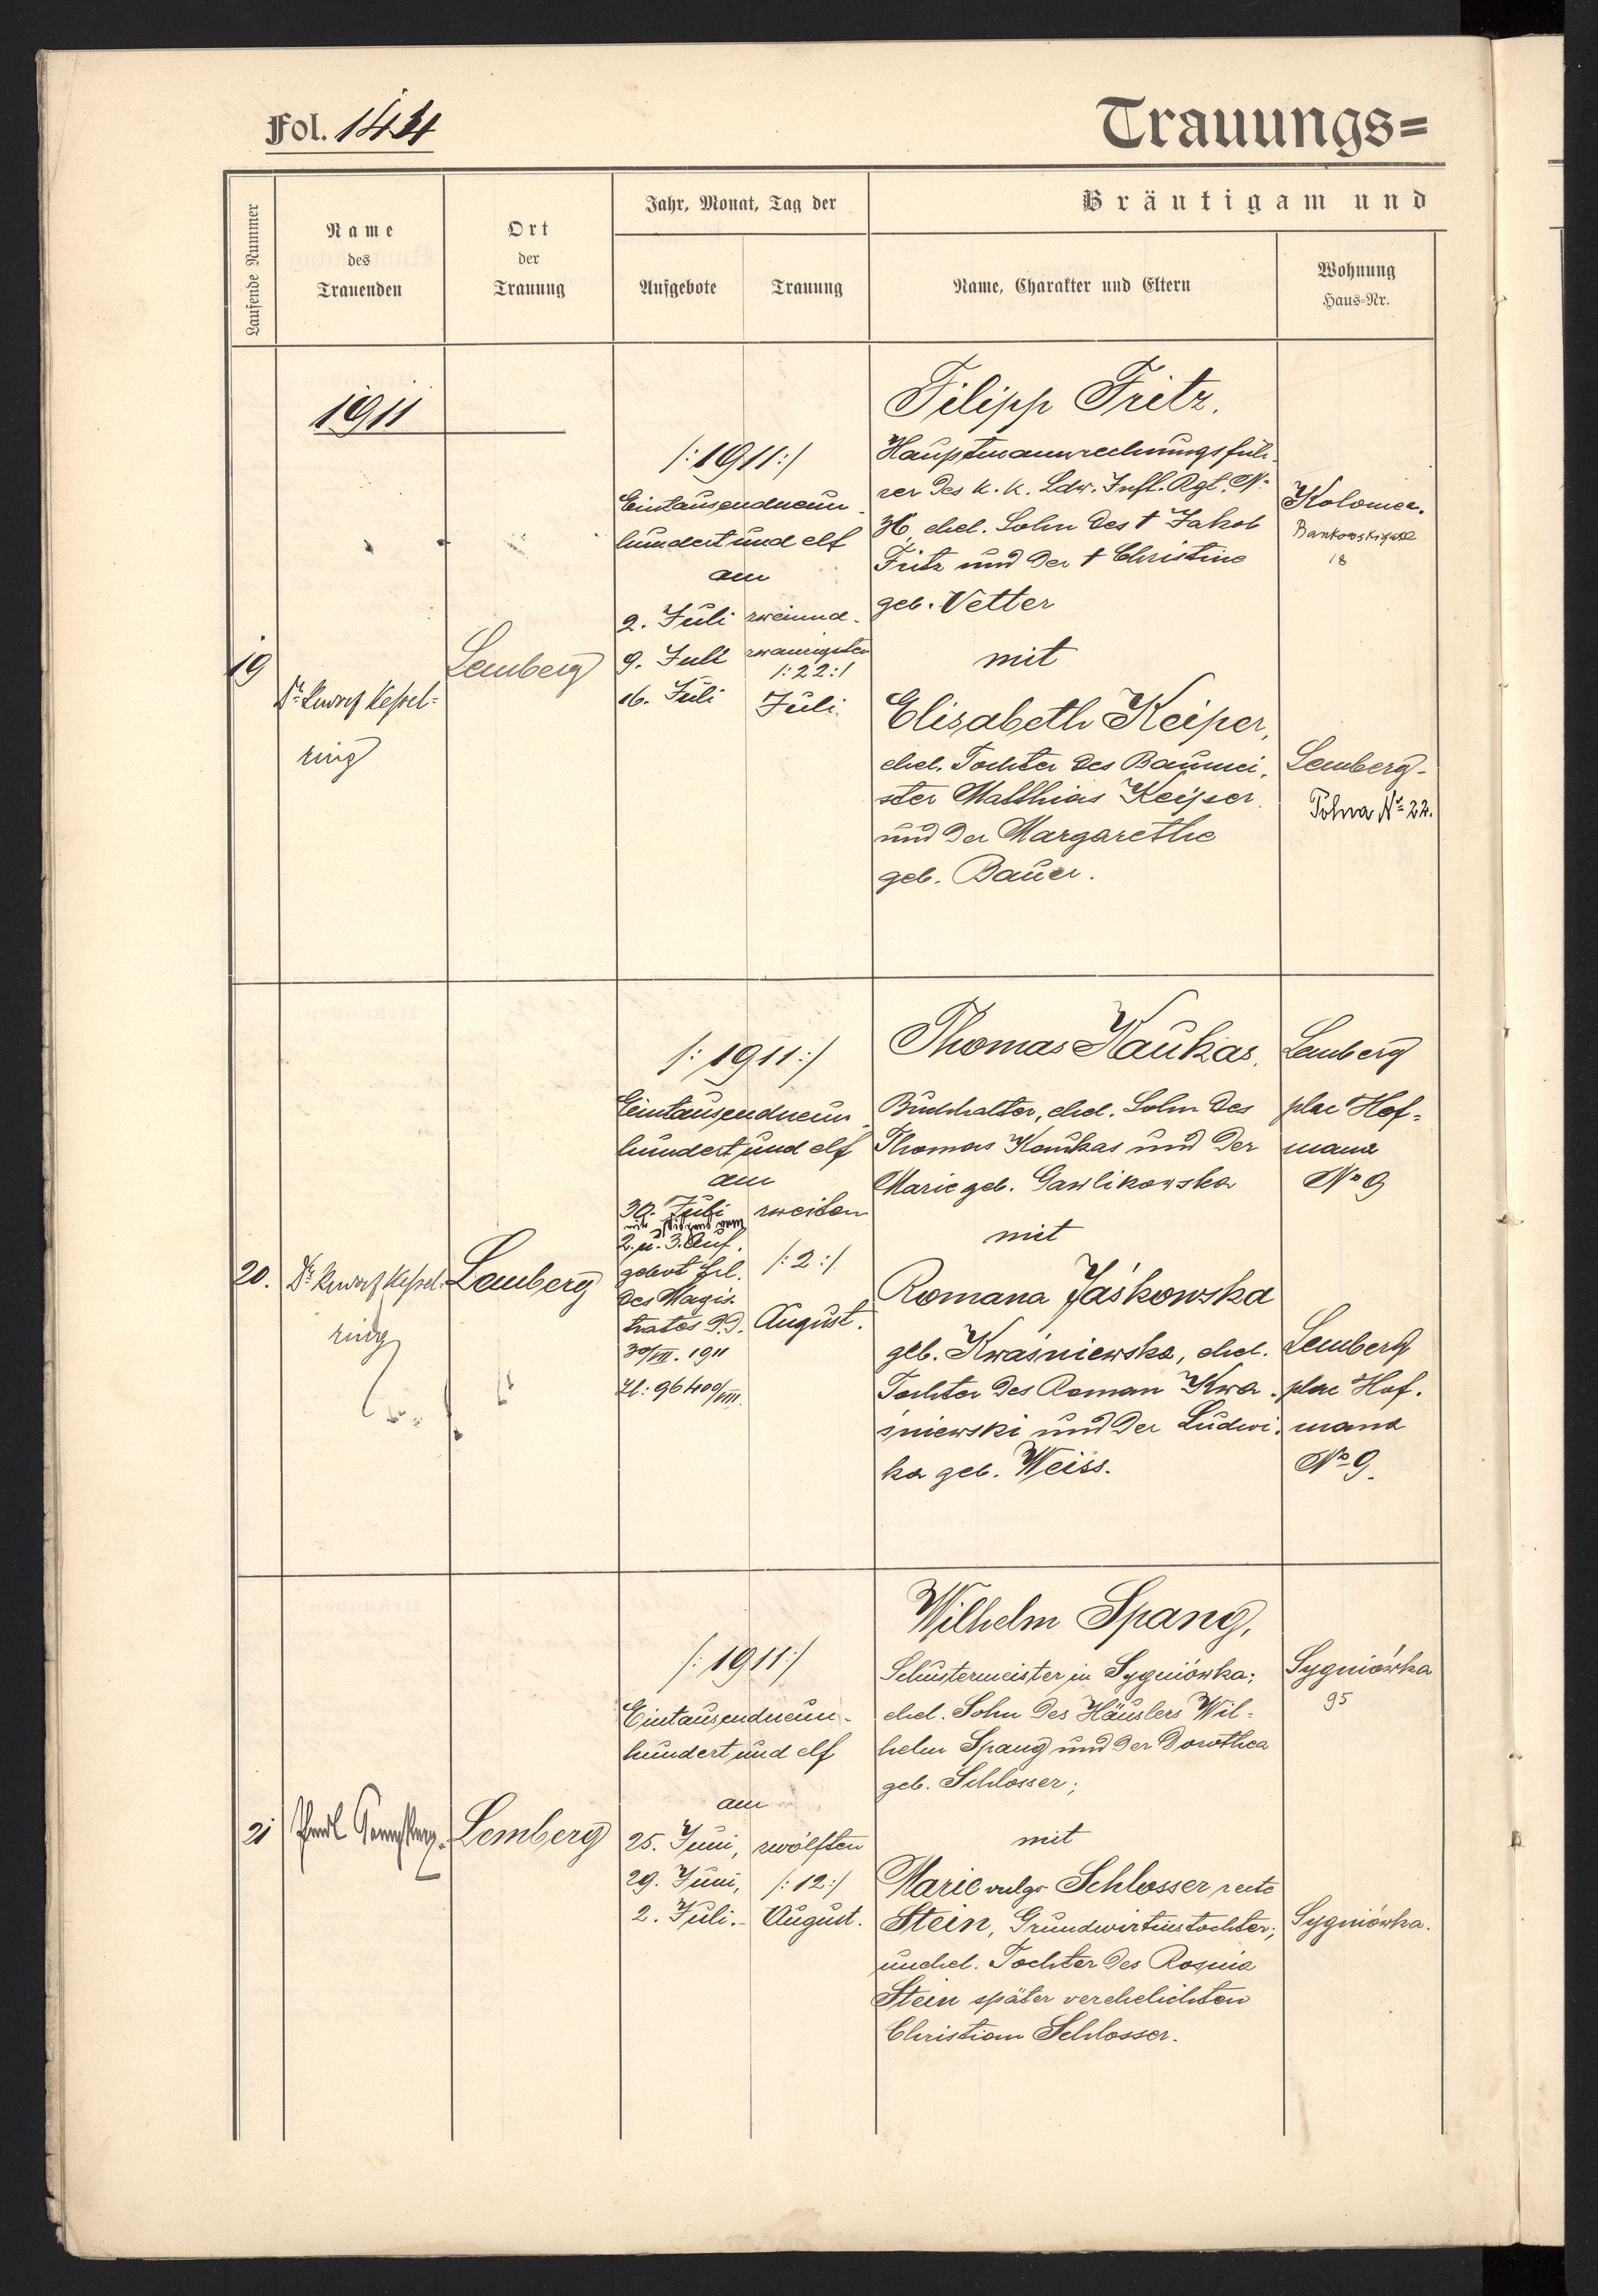 Fol. 144
Trauungs=
Laufende Nummer
Name
des
Trauenden
Ort
der
Trauung
Jahr, Monat, Tag der
Aufgebote
Trauung
Bräutigam und
Name, Charakter und Eltern
Wohnung
Haus=Nr.
1911
19
Dr. Kessel=
ring
Lemberg
/: 1911 :/
Eintausendneun-
hundert und elf
am
2. Juli
9. Juli
16. Juli
zweiund-
zwanzigsten
/: 22 :/
Juli.
Filipp Fritz,
Hauptmannrechnungsfüh-
rer des k. k. Ldw. Inft. Rgt. No
36, ehel. Sohn des † Jakob
Fritz und der † Christine
geb. Vetter
mit
Elisabeth Keiper,
ehel. Tochter des Baumei-
ster Matthias Keiper
und der Margarethe
geb. Bauer.
Kolomea.
Bankowskigasse
18
Lemberg-
Polna No 22.
20.
Dr. Kessel-
ring
Lemberg
/: 1911 :/
Eintausendneun-
hundert und elf
am
30. Juli
mit vom
2. u. 3. Auf-
gebot
des Magis-
trates
30/VII. 1911
Zl: 96400/VIII.
zweiten
/: 2 :/
August.
Thomas Kaukas,
Buchhalter, ehel. Sohn des
Thomas Kaukas und der
Marie geb. Gawlikowska
mit
Romana Jáskowska
geb. Kwaśniewska, ehel.
Tochter des Roman Kwa-
śniewski und der Ludwi-
ka geb. Weiss.
Lemberg
plac Hof=
mana
No 9
Lemberg
plac Hof-
mana
No 9.
21
Lemberg
/: 1911 :/
Eintausendneun-
hundert und elf
am
25. Juni,
29. Juni,
2. Juli.-
zwölften
/: 12 :/
August.
Wilhelm Spang,
Schustermeister in Sygniówka;
ehel. Sohn des Häuslers Wil=
helm Spang und der Dorothea
geb. Schlosser;
mit
Marie vulgo Schlosser recte
Stein, Grundwirtinstochter;
unehel. Tochter des Rosina
Stein später verehelichten
Christian Schlosser.
Sygniówka
95
Sygniówka.